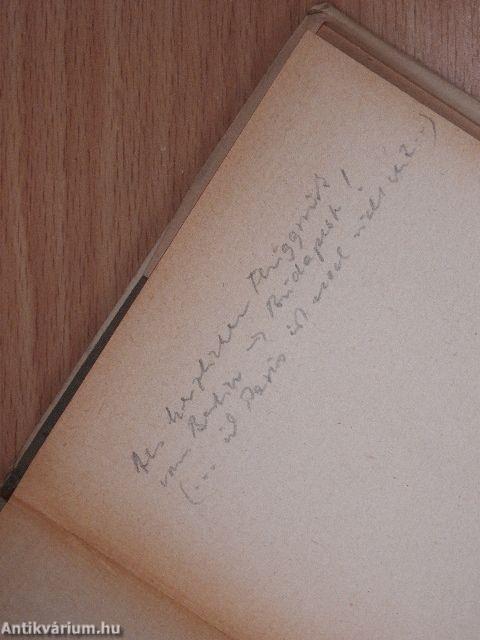 Als herzlichen Fluggruß
von Berlin → Budapest!
(... und Paris ist noch nicht
Antikvárium.hu